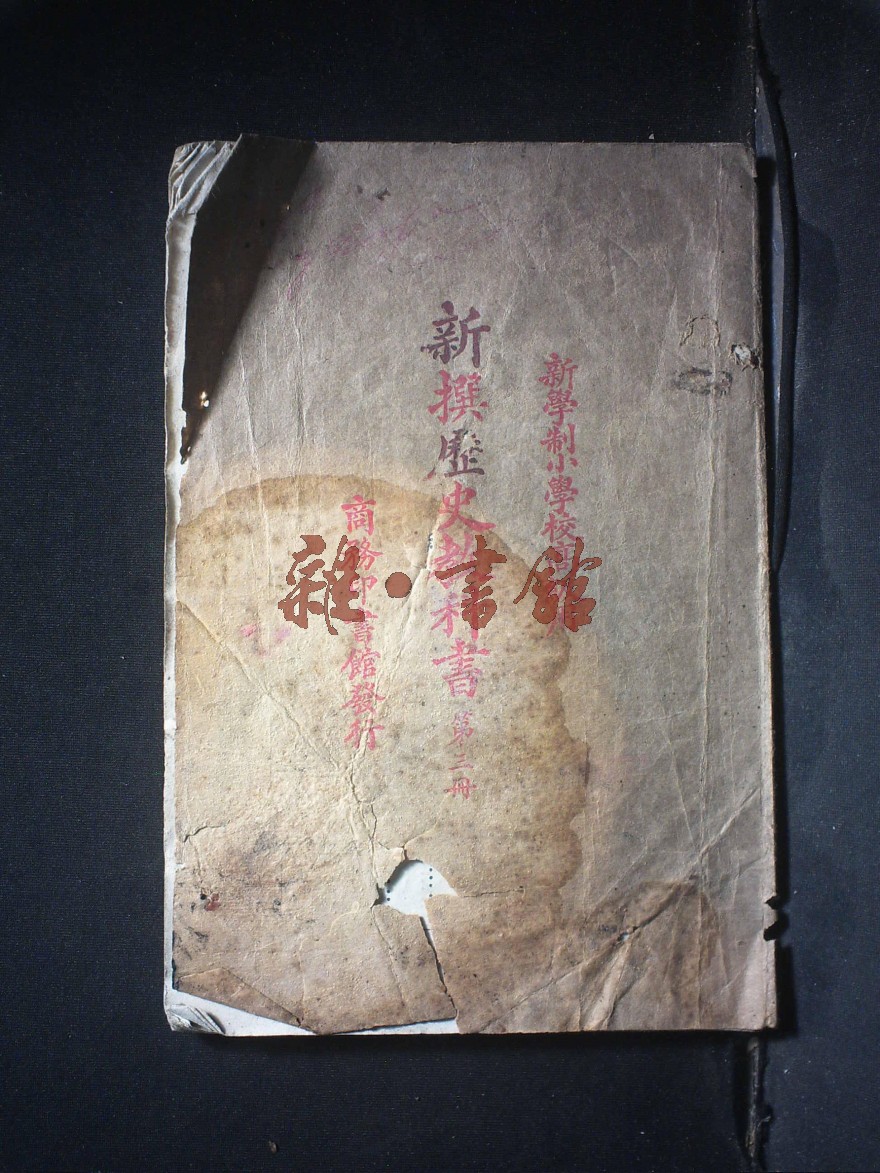 新學制小學校高
新撰歷史教科書 第三冊
商務印書館發行
雜·書館